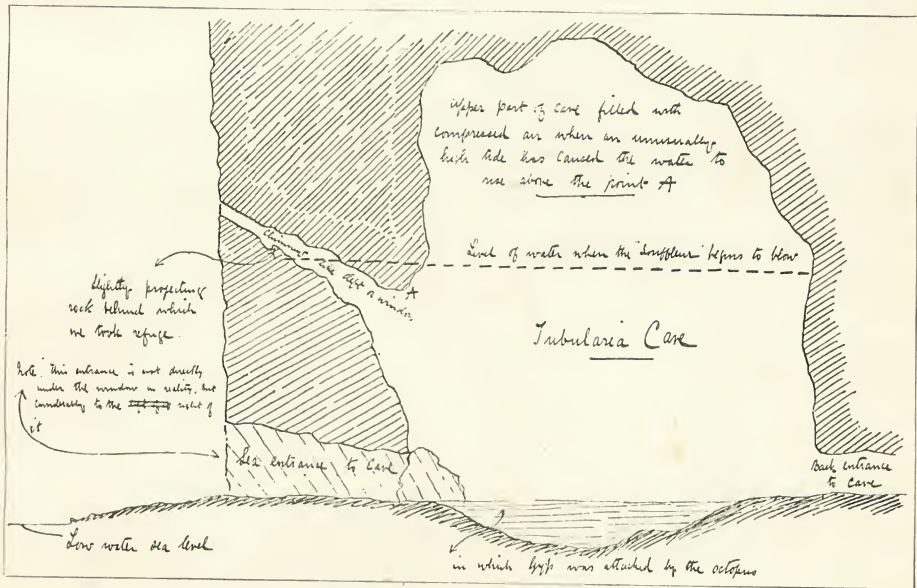 Upper part of cave filled with
compressed air when an unusually
high tide has caused the water to
rise above the point A
Chimney like cleft or window
A
Level of water when the "Souffleur" begins to blow
Slightly projecting
rock behind which
we took refuge.
Tubularia Cave
Note. this entrance is not directly
under the window in reality, but
considerably to the right of
it
Sea entrance to Cave
Back entrance
to Cave
Low water sea level
in which Gyp was attacked by the octopus